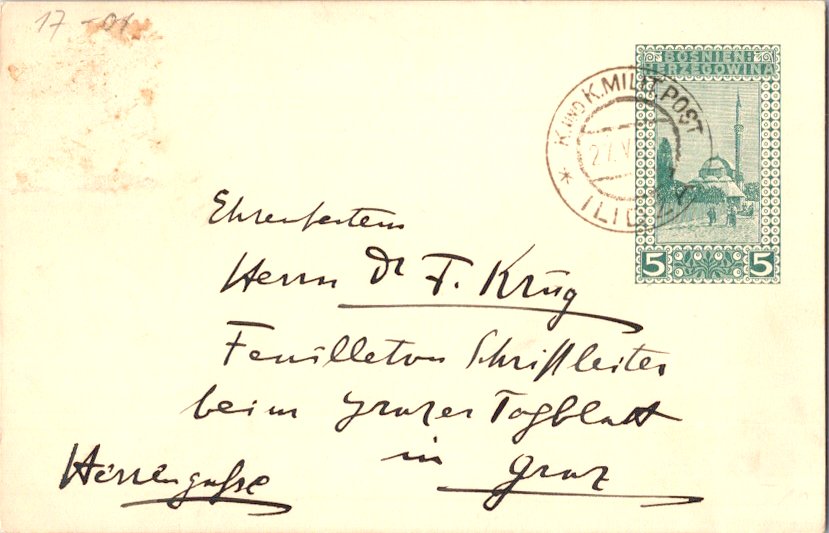 17 -01.
BOSNIEN-
HERZEGOWINA
K. UND K. MILIT. POST
27. V
* ILIDZ
5 5
Ehrenfestem
Herrn Dr F. Krug
Feuilleton Schriftleiter
beim Grazer Tagblatt
in Graz
Herrengasse